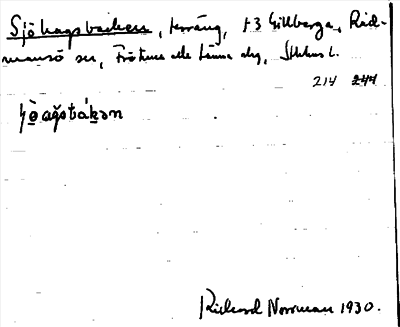 Sjöhagsbacken, terräng, t3 Gillberga, Råd-
mansö sn, Frötuna och Länna skg, Sthlms l.
214 244
Richard Norrman 1930.